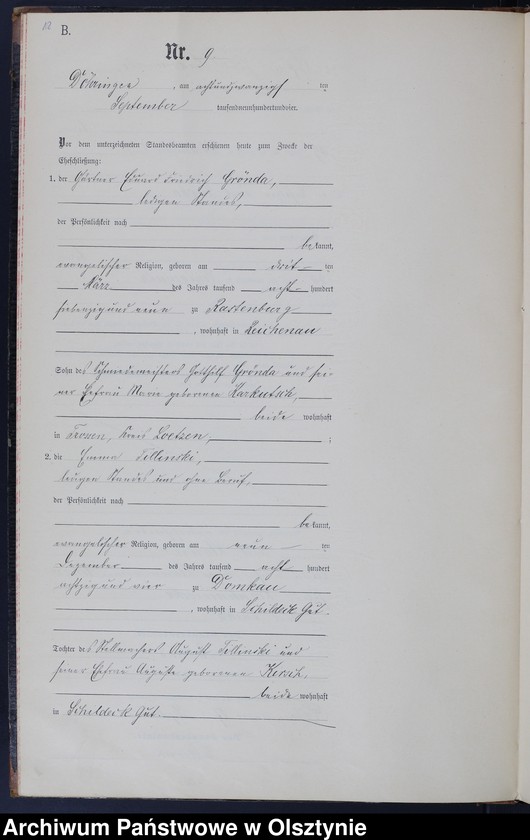 12
B.
Nr. 9
Döhringen, am achtundzwanzigsten
September tausendneunhundertundvier.
Vor dem unterzeichneten Standesbeamten erschienen heute zum Zwecke der
Eheschließung:
1. der Gärtner Eduard Friedrich Grönda,
ledigen Standes,
der Persönlichkeit nach
bekannt,
evangelischer Religion, geboren am dritten
März des Jahres tausend acht hundert
siebenzig und neun zu Rastenburg
, wohnhaft in Reichenau
Sohn des Schmiedemeisters Gotthelf Grönda und sei-
ner Ehefrau Marie geborenen Karkutsch,
beide wohnhaft
in Trossen, Kreis Loetzen, ;
2. die Emma Tellenski,
ledigen Standes und ohne Beruf,
der Persönlichkeit nach
bekannt,
evangelischer Religion, geboren am neunten
Dezember des Jahres tausend acht hundert
achtzig und vier zu Domkau
, wohnhaft in Schildeck Gut.
Tochter des Stellmachers August Tellenski und
seiner Ehefrau Auguste geborenen
beide wohnhaft
in Schildeck Gut.
Archiwum Państwowe w Olsztynie